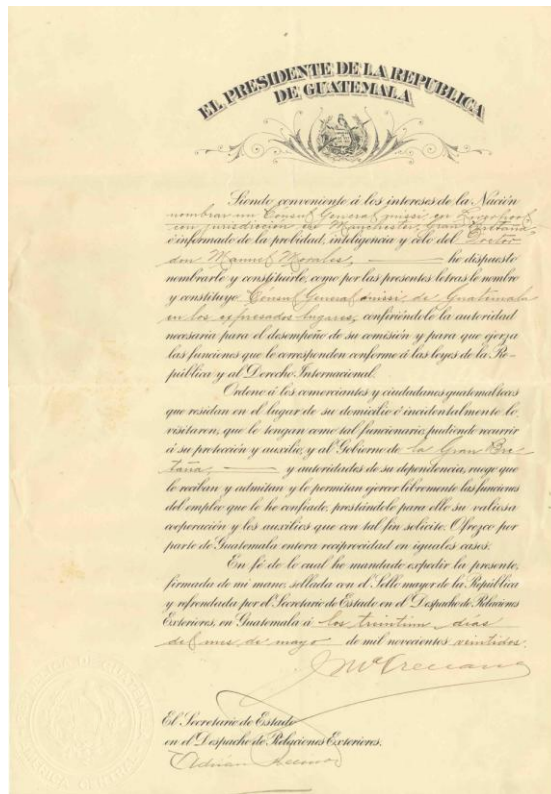 EL PRESIDENTE DE LA REPUBLICA
DE GUATEMALA
Siendo conveniente á los intereses de la Nación
nombrar un Consul General missi en Liverpool
con jurisdicción en Manchester, Gran Bretaña
é informado de la probidad, inteligencia y celo del Doctor
don Manuel Morales, ha dispuesto
nombrarle y constituirle, como por las presentes letras le nombro
y constituyo Cónsul General missi de Guatemala
en los expresados lugares, confiriéndole la autoridad
necesaria para el desempeño de su comisión y para que ejerza
las funciones que le corresponden conforme á las leyes de la Re-
pública y al Derecho Internacional.
Ordeno á los comerciantes y ciudadanos guatemaltecos
que residan en el lugar de su domicilio ó incidentalmente lo
visitaren, que le tengan como tal funcionario, pudiendo recurrir
á su protección y auxilio, y al Gobierno de la Gran Bre-
taña, y autoridades de su dependencia, ruego que
le reciban y admitan y le permitan ejercer libremente las funciones
del empleo que le he confiado, prestándole para ello su valiosa
cooperación y los auxilios que con tal fin solicite. Ofrezco por
parte de Guatemala entera reciprocidad en iguales casos.
En fé de lo cual he mandado expedir la presente,
firmada de mi mano, sellada con el Sello mayor de la República
y refrendada por el Secretario de Estado en el Despacho de Relaciones
Exteriores, en Guatemala á los treintiun días
del mes de mayo de mil novecientos veintidos.
El Secretario de Estado
en el Despacho de Relaciones Exteriores,
Adrián Recinos